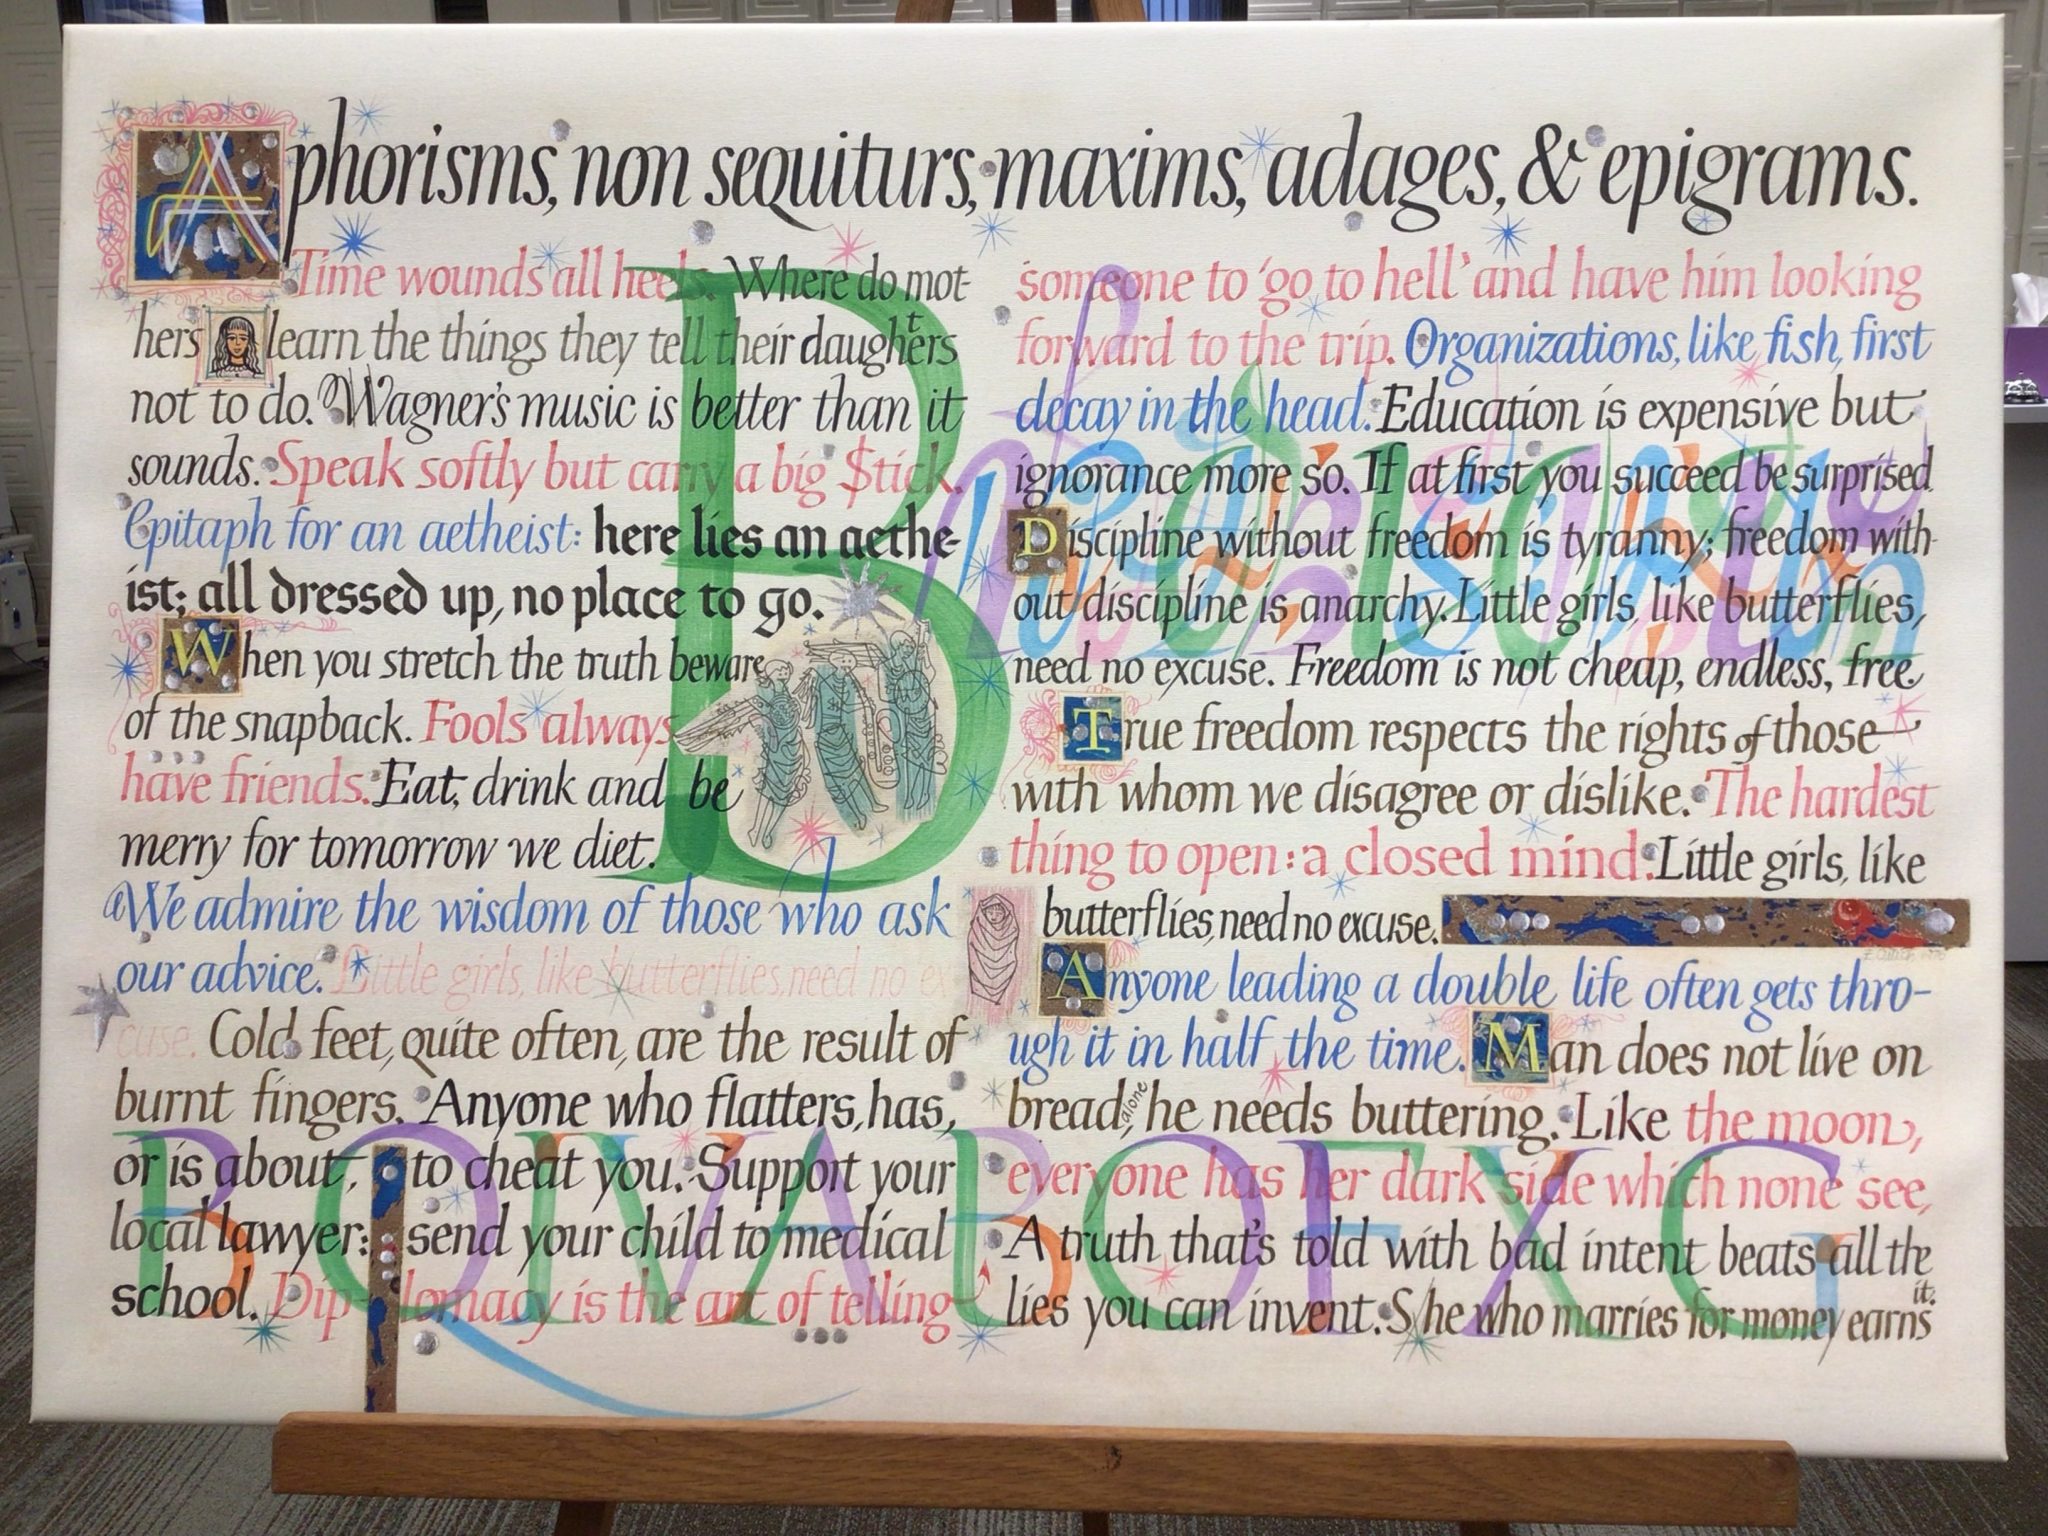 Aphorisms, non sequiturs, maxims, adages, & epigrams.
Time wounds all heels. Where do mot-
hers learn the things they tell their daughters
not to do. Wagner's music is better than it
sounds. Speak softly but carry a big $tick.
Epitaph for an aetheist: here lies an aethe-
ist; all dressed up, no place to go.
When you stretch the truth beware
of the snapback. Fools always
have friends. Eat, drink and be
merry for tomorrow we diet.
We admire the wisdom of those who ask
our advice. Little girls, like butterflies, need no ex
cuse. Cold feet, quite often, are the result of
burnt fingers. Anyone who flatters, has,
or is about, to cheat you. Support your
local lawyer: send your child to medical
school. Dip-lomacy is the art of telling
someone to 'go to hell' and have him looking
forward to the trip. Organizations, like fish, first
decay in the head. Education is expensive but
ignorance more so. If at first you succeed be surprised.
Discipline without freedom is tyranny; freedom with-
out discipline is anarchy. Little girls, like butterflies,
need no excuse. Freedom is not cheap, endless, free.
True freedom respects the rights of those
with whom we disagree or dislike. The hardest
thing to open: a closed mind. Little girls, like
butterflies, need no excuse.
Anyone leading a double life often gets thro-
ugh it in half the time. Man does not live on
bread, alone, he needs buttering. Like the moon,
everyone has her dark side which none see,
A truth that's told with bad intent beats all the
lies you can invent. S/he who marries for money earns it.
B
RQNABOEXG